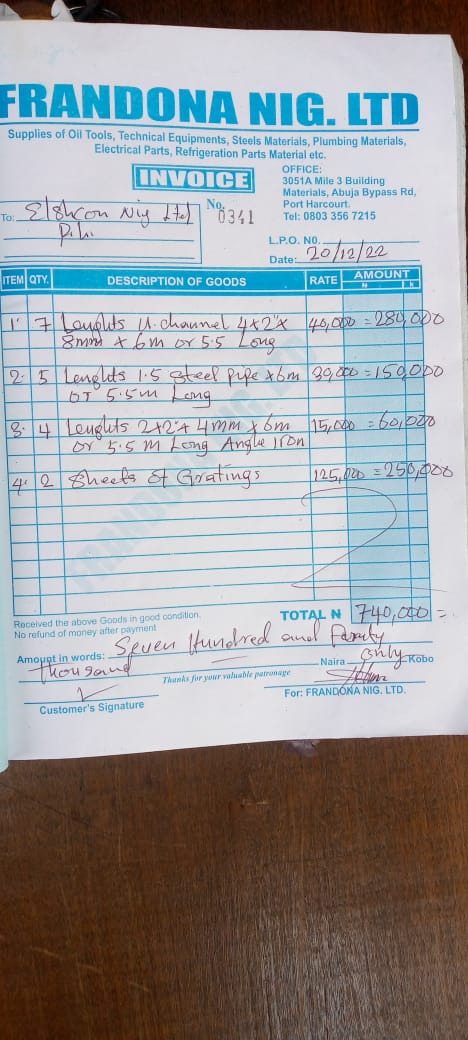 FRANDONA NIG. LTD
Supplies of Oil Tools, Technical Equipments, Steels Materials, Plumbing Materials,
Electrical Parts, Refrigeration Parts Material etc.
INVOICE
OFFICE:
3051A Mile 3 Building
Materials, Abuja Bypass Rd,
Port Harcourt.
Tel: 0803 356 7215
No. 0341
To: Elshcon Nig Ltd
L.P.O. NO.
Date: 20/12/22
ITEM QTY. DESCRIPTION OF GOODS RATE AMOUNT
N K
1. 7 Lenghts U.channel 4x2"x 40,000 = 280,000
8mm x 6m or 5.5 Long
2. 5 Lenghts 1.5 Steel pipe x6m 30,000 = 150,000
or 5.5m Long
3. 4 Lenghts 2x2x4mm x 6m 15,000 = 60,000
or 5.5 m Long Angle Iron
4. 2 Sheets of Gratings 125,000 = 250,000
FRANDONA NIG. LTD
Received the above Goods in good condition.
No refund of money after payment
TOTAL N 740,000 =
Amount in words: Seven Hundred and Fourty
Thousand Naira Only Kobo
Thanks for your valuable patronage
Customer's Signature
For: FRANDONA NIG. LTD.